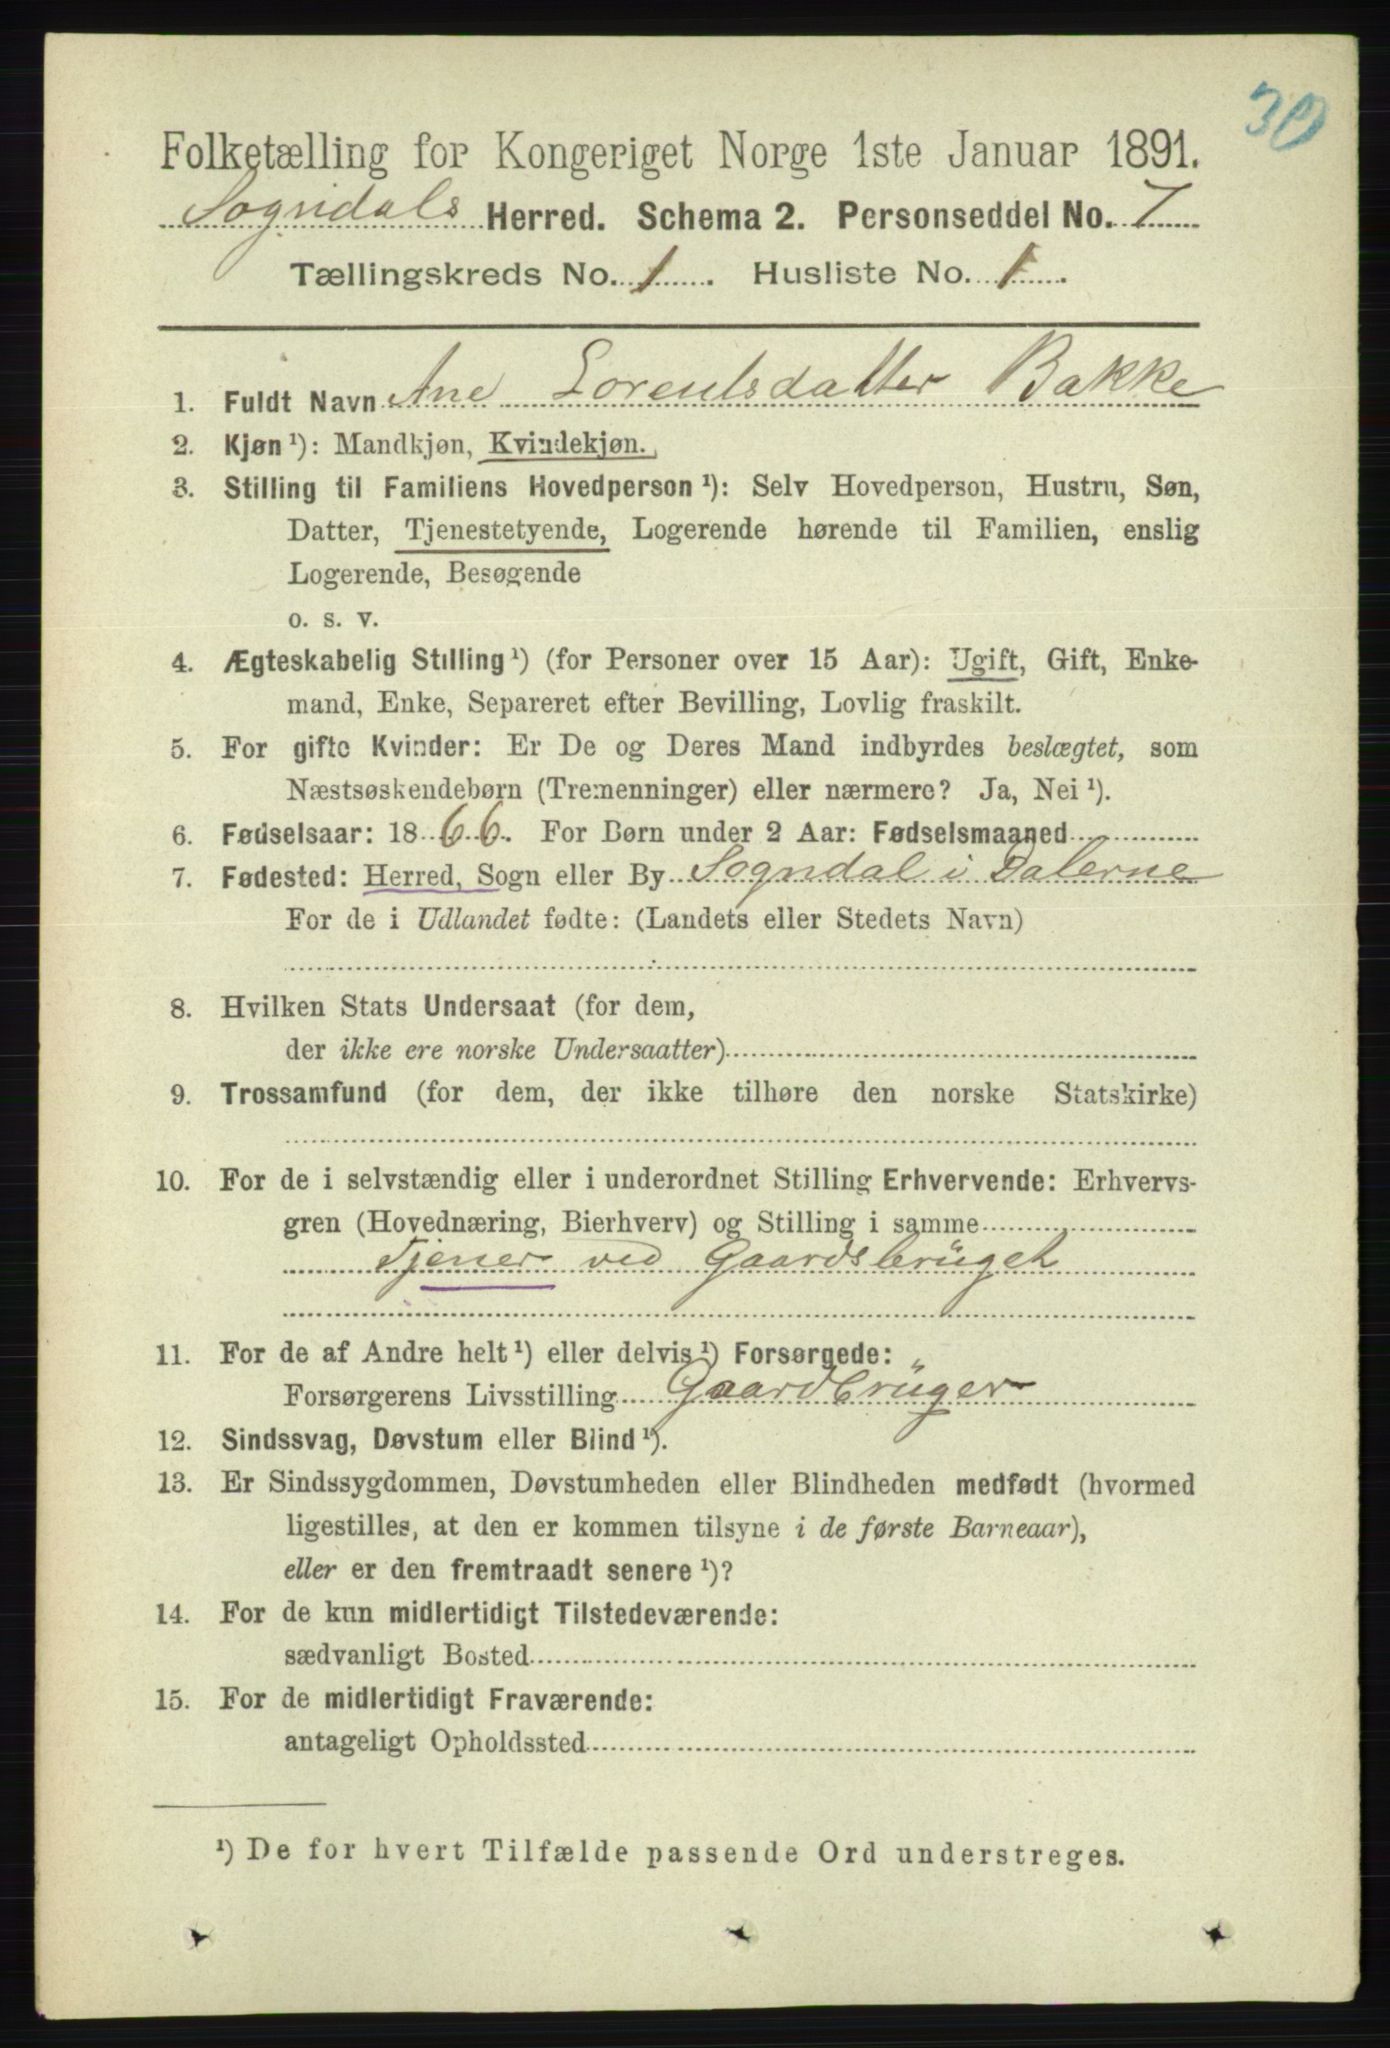 30
Folketælling for Kongeriget Norge 1ste Januar 1891.
Sogndals Herred. Schema 2. Personseddel No. 7
Tællingskreds No. 1. Husliste No. 1.
1. Fuldt Navn Ane Lorentsdatter Bakke
2. Kjøn ¹): Mandkjøn, Kvindekjøn.
3. Stilling til Familiens Hovedperson ¹): Selv Hovedperson, Hustru, Søn,
Datter, Tjenestetyende, Logerende hørende til Familien, enslig
Logerende, Besøgende
o. s. v.
4. Ægteskabelig Stilling ¹) (for Personer over 15 Aar): Ugift, Gift, Enke-
mand, Enke, Separeret efter Bevilling, Lovlig fraskilt.
5. For gifte Kvinder: Er De og Deres Mand indbyrdes beslægtet, som
Næstsøskendebørn (Tremenninger) eller nærmere? Ja, Nei ¹).
6. Fødselsaar: 1866. For Børn under 2 Aar: Fødselsmaaned
7. Fødested: Herred, Sogn eller By Sogndal i Dalerne
For de i Udlandet fødte: (Landets eller Stedets Navn)
8. Hvilken Stats Undersaat (for dem,
der ikke ere norske Undersaatter)
9. Trossamfund (for dem, der ikke tilhøre den norske Statskirke)
10. For de i selvstændig eller i underordnet Stilling Erhvervende: Erhvervs-
gren (Hovednæring, Bierhverv) og Stilling i samme
Tjener ved Gaardsbrüget
11. For de af Andre helt ¹) eller delvis ¹) Forsørgede:
Forsørgerens Livsstilling Gaardbrüger
12. Sindssvag, Døvstum eller Blind ¹).
13. Er Sindssygdommen, Døvstumheden eller Blindheden medfødt (hvormed
ligestilles, at den er kommen tilsyne i de første Barneaar),
eller er den fremtraadt senere ¹)?
14. For de kun midlertidigt Tilstedeværende:
sædvanligt Bosted
15. For de midlertidigt Fraværende:
antageligt Opholdssted
¹) De for hvert Tilfælde passende Ord understreges.